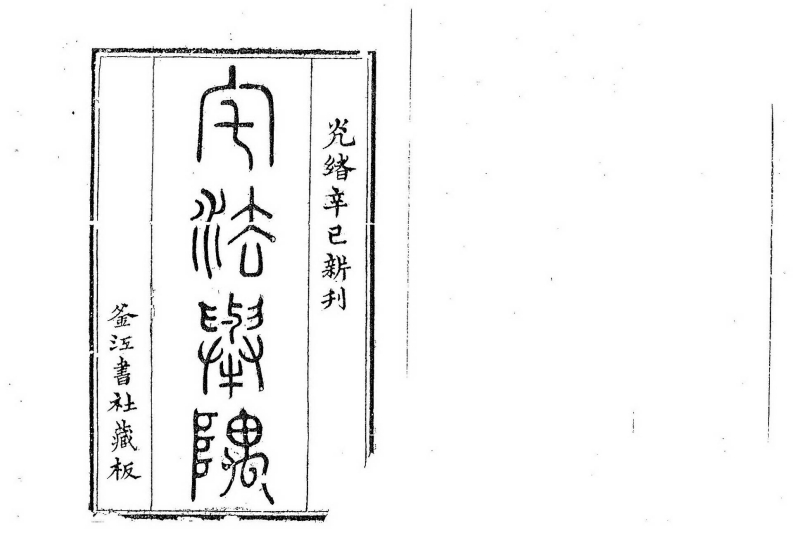 光緒辛巳新刊
宅法舉隅
釜江書社藏板